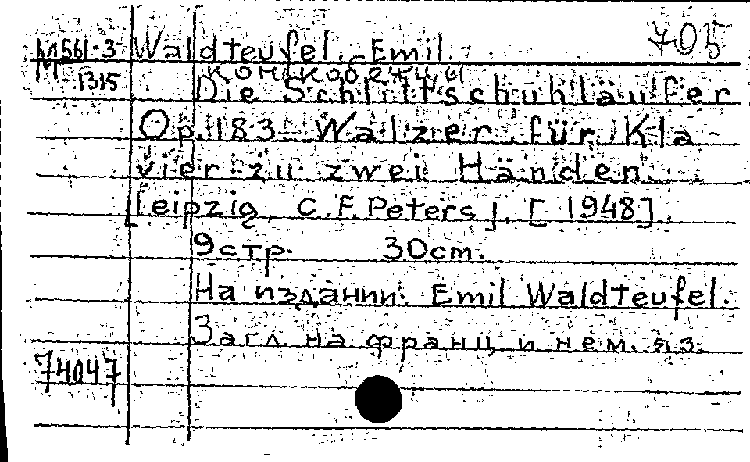 705
М561-3 Waldteufel. Emil.
М 1315 конькобежцы
Die Schlittschuhläufer
Op. 183 Walzer für Kla-
vier zu zwei Händen.
Leipzig, C.F. Peters]. [1948].
9стр. 30cm.
На издании: Emil Waldteufel.
Загл. на франц. и нем. яз.
74047